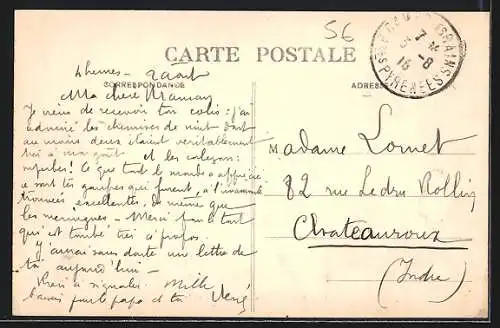 56
CARTE POSTALE
CORRESPONDANCE
ADRESSE
Thermes - 2 août
Ma chère Maman
Je viens de recevoir ton colis : j'ai
admiré les chemises de nuit dont
au moins deux étaient véritablement
très à mon goût et les caleçons :
superbes ! Ce que tout le monde a apprécié
ce sont tes gaufres qui furent, à l'unanimité
trouvées excellentes, de même que
les meringues - Merci pour le tout
qui est tombé très à propos.
J'aurai sans doute une lettre de
toi aujourd'hui -
Rien à signaler. Mille
baisers pour le papa et toi
Madame Lornet
82 rue Ledru Rollin
Chateauroux
(Indre)
7
16 -8
PYRENEES